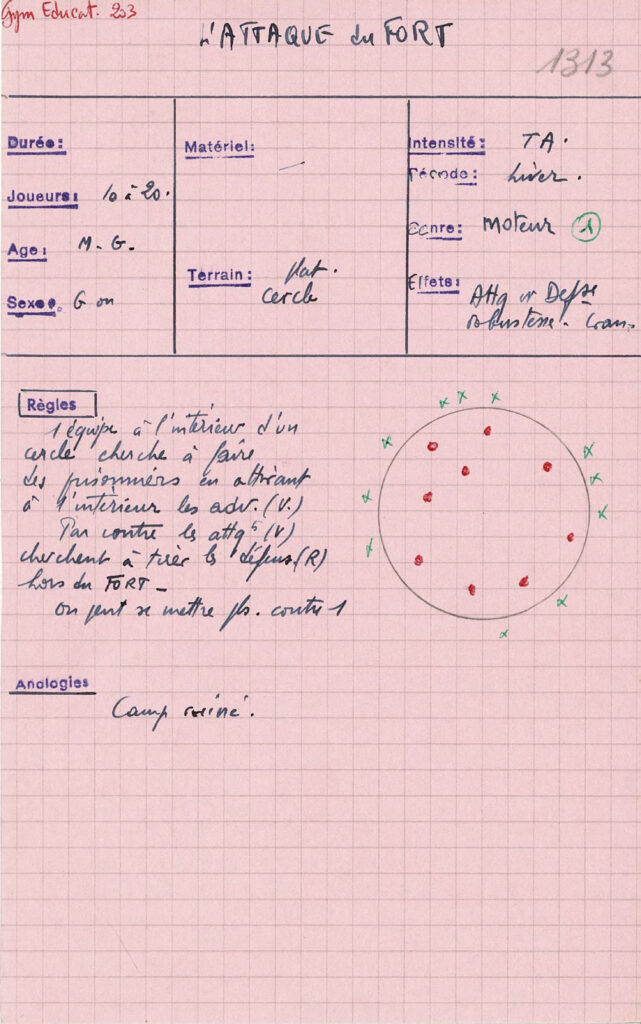 Gym Educat. 203
L'ATTAQUE du FORT
1313
Durée:
Joueurs: 10 à 20.
Age: M. G.
Sexe. G on
Matériel:
Terrain: plat.
cercle
Intensité: TA.
Période: hiver.
Genre: moteur 1
Effets: Attq Defse
robustesse.
Règles
1 équipe à l'intérieur d'un
cercle cherche à faire
des prisonniers en attirant
à l'intérieur les adv. (V.)
Par contre les attqts (V)
cherchent à tirer les défens (R)
hors du FORT -
on peut se mettre pls. contre 1
Analogies
Camp